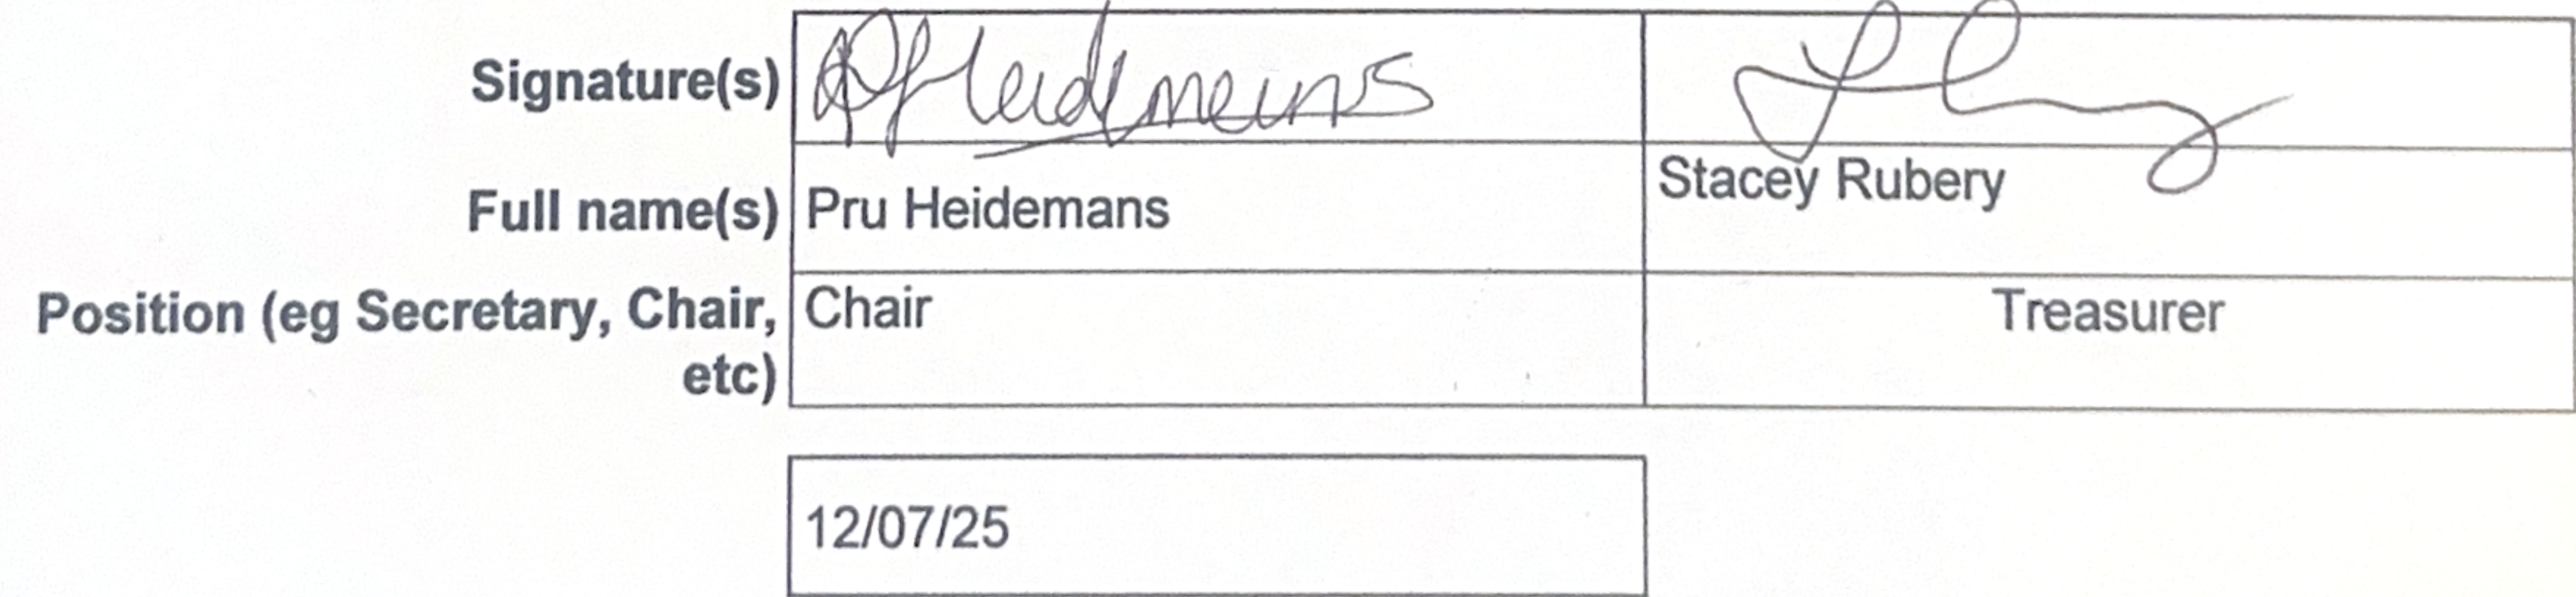 Signature(s)
Full name(s) Pru Heidemans Stacey Rubery
Position (eg Secretary, Chair, Chair Treasurer
etc)
12/07/25